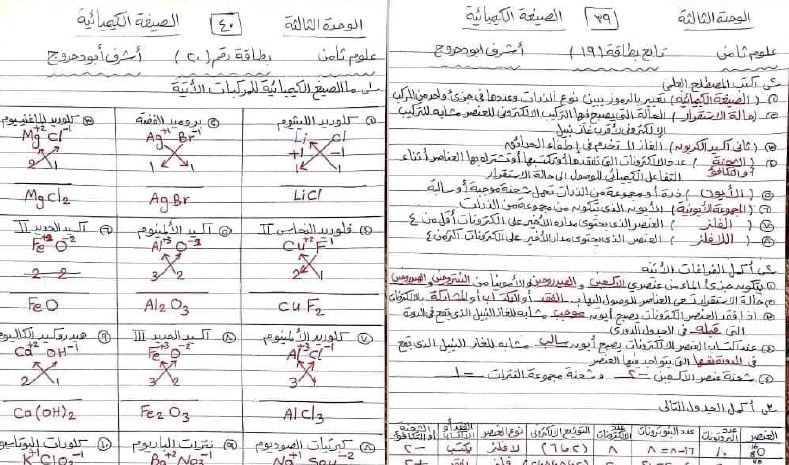 الوحدة الثالثة ٣٩ الصيغة الكيميائية
علوم ثامن تابع بطاقة (١٩) أشرف ابودحروج
اكتب المصطلح العلمي
① (الصيغة الكيميائية) تعبير بالرموز يبين نوع الذرات وعددها في جزئ واحد من المركب
② (حالة الاستقرار) الحالة التي يصبح فيها التركيب الالكتروني للعنصر مشابه للتركيب
الالكتروني لأقرب غاز نبيل
③ (ثاني أكسيد الكربون) الغاز المستخدم في إطفاء الحرائق
④ (الشحنة أو التكافؤ) عدد الالكترونات التي تفقدها أو تكتسبها أو تشترك بها العناصر أثناء
التفاعل الكيميائي للوصول الى حالة الاستقرار
⑤ (الأيون) ذرة أو مجموعة من الذرات تحمل شحنة موجبة أو سالبة
⑥ (المجموعة الأيونية) الأيون الذي يتكون من مجموعة من الذرات
⑦ (الفلز) العنصر الذي يحتوي مداره الأخير على الكترونات أقل من ٤
⑧ (اللافلز) العنصر الذي يحتوي مداره الأخير على الكترونات أكثر من ٤
أكمل الفراغات الآتية
① يتكون جزئ الماء من عنصري الأكسجين و الهيدروجين والأمونيا من النيتروجين والهيدروجين
② حالة الاستقرار تسعى العناصر للوصول اليها بـ الفقد أو الاكتساب أو المشاركة بالالكترونات
③ اذا فقد العنصر الكترونات يصبح أيون موجب مشابه للغاز النبيل الذي يقع في الدورة
التي قبله في الجدول الدوري
④ عند اكتساب العنصر الالكترونات يصبح أيون سالب مشابه للغاز النبيل الذي يقع
في الدورة نفسها التي يتواجد فيها العنصر
⑤ شحنة عنصر الأكسجين -٢ وشحنة مجموعة النترات -١
أكمل الجدول التالي
العنصر عدد البروتونات عدد النيوترونات عدد الالكترونات التوزيع الالكتروني نوع العنصر الفقد أو الاكتساب الشحنة أو التكافؤ
الوحدة الثالثة ٤٠ الصيغة الكيميائية
علوم ثامن بطاقة رقم (٢٠) أشرف أبودحروج
ما الصيغ الكيميائية للمركبات الآتية
① كلوريد الليثيوم ② بروميد الفضة ③ كلوريد المغنيسيوم
Li Cl Ag+1 Br-1 Mg+2 Cl-1
+1 -1 1 1 2 1
LiCl AgBr MgCl2
④ فلوريد النحاس II ⑤ أكسيد الألمنيوم ⑥ أكسيد الحديد II
Cu+2 F-1 Al+3 O-2 Fe+2 O-2
2 1 3 2 2 2
CuF2 Al2O3 FeO
⑦ كلوريد الألمنيوم ⑧ أكسيد الحديد III ⑨ هيدروكسيد الكالسيوم
Al+3 Cl-1 Fe+3 O-2 Ca+2 OH-1
3 2 2 1
AlCl3 Fe2O3 Ca(OH)2
كبريتات الصوديوم نترات الباريوم كلورات البوتاسيوم
Na+1 SO4-2 Ba+2 NO3-1 K+1 ClO3-1